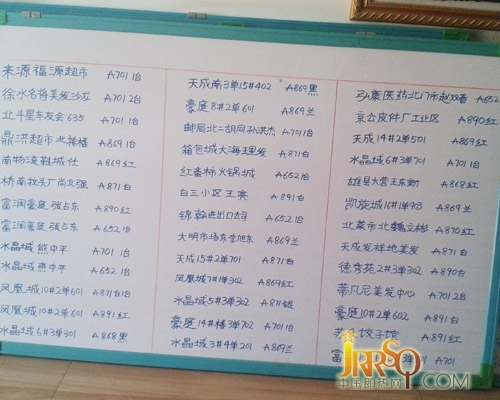 来源福源超市 A701 1台
徐水名将美发沙龙 A701 2台
北斗星车友会 635 A701 1台
鼎洪超市北拌楼 A869 1台
南物流鞋城仕 A869红
桥南牧头厂尚文强 A871白
富润豪庭 张占东 A890红
富润豪庭 张占东 A652 1台
水晶域 熊中平 A701 1台
水晶域 熊中平 A652 1台
凤凰城10#2单601 A871白1台
凤凰城10#2单601 A891红
水晶域6#3单301 A868黑
天成南3单15#402 A869黑
豪庭8#2单601 A869兰
邮局北二胡同孙洪杰 A701 1台
箱包城大海理发 A871白
红番柿火锅城 A652 1台
白三小区王宾 A891白
锦翰进出口公司 A652 1台
大明市场东李旭东 A869兰
天成15#2单701 A871白
凤凰城7#1单302 A869红
水晶域5#3单302 A871银
豪庭14#楼3单702 A701 1台
水晶域3#4单201 A869兰
弘康医药北门市赵双春 A652
京公皮件厂工业区 A890红
天成14#2单501 A869红
水晶域6#3单701 A871白
雄县大营王东新 A868黑
凯旋城16#1单903 A869兰
北菜市北魏文彬 A870红
天成发祥地美发 A871白
德秀苑2#3单302 A890白
蒂凡尼美发中心 A701 2台
豪庭10#2单602 A891白
饺子馆 A891红
富 A701
JRRSQ.COM
中国即热网